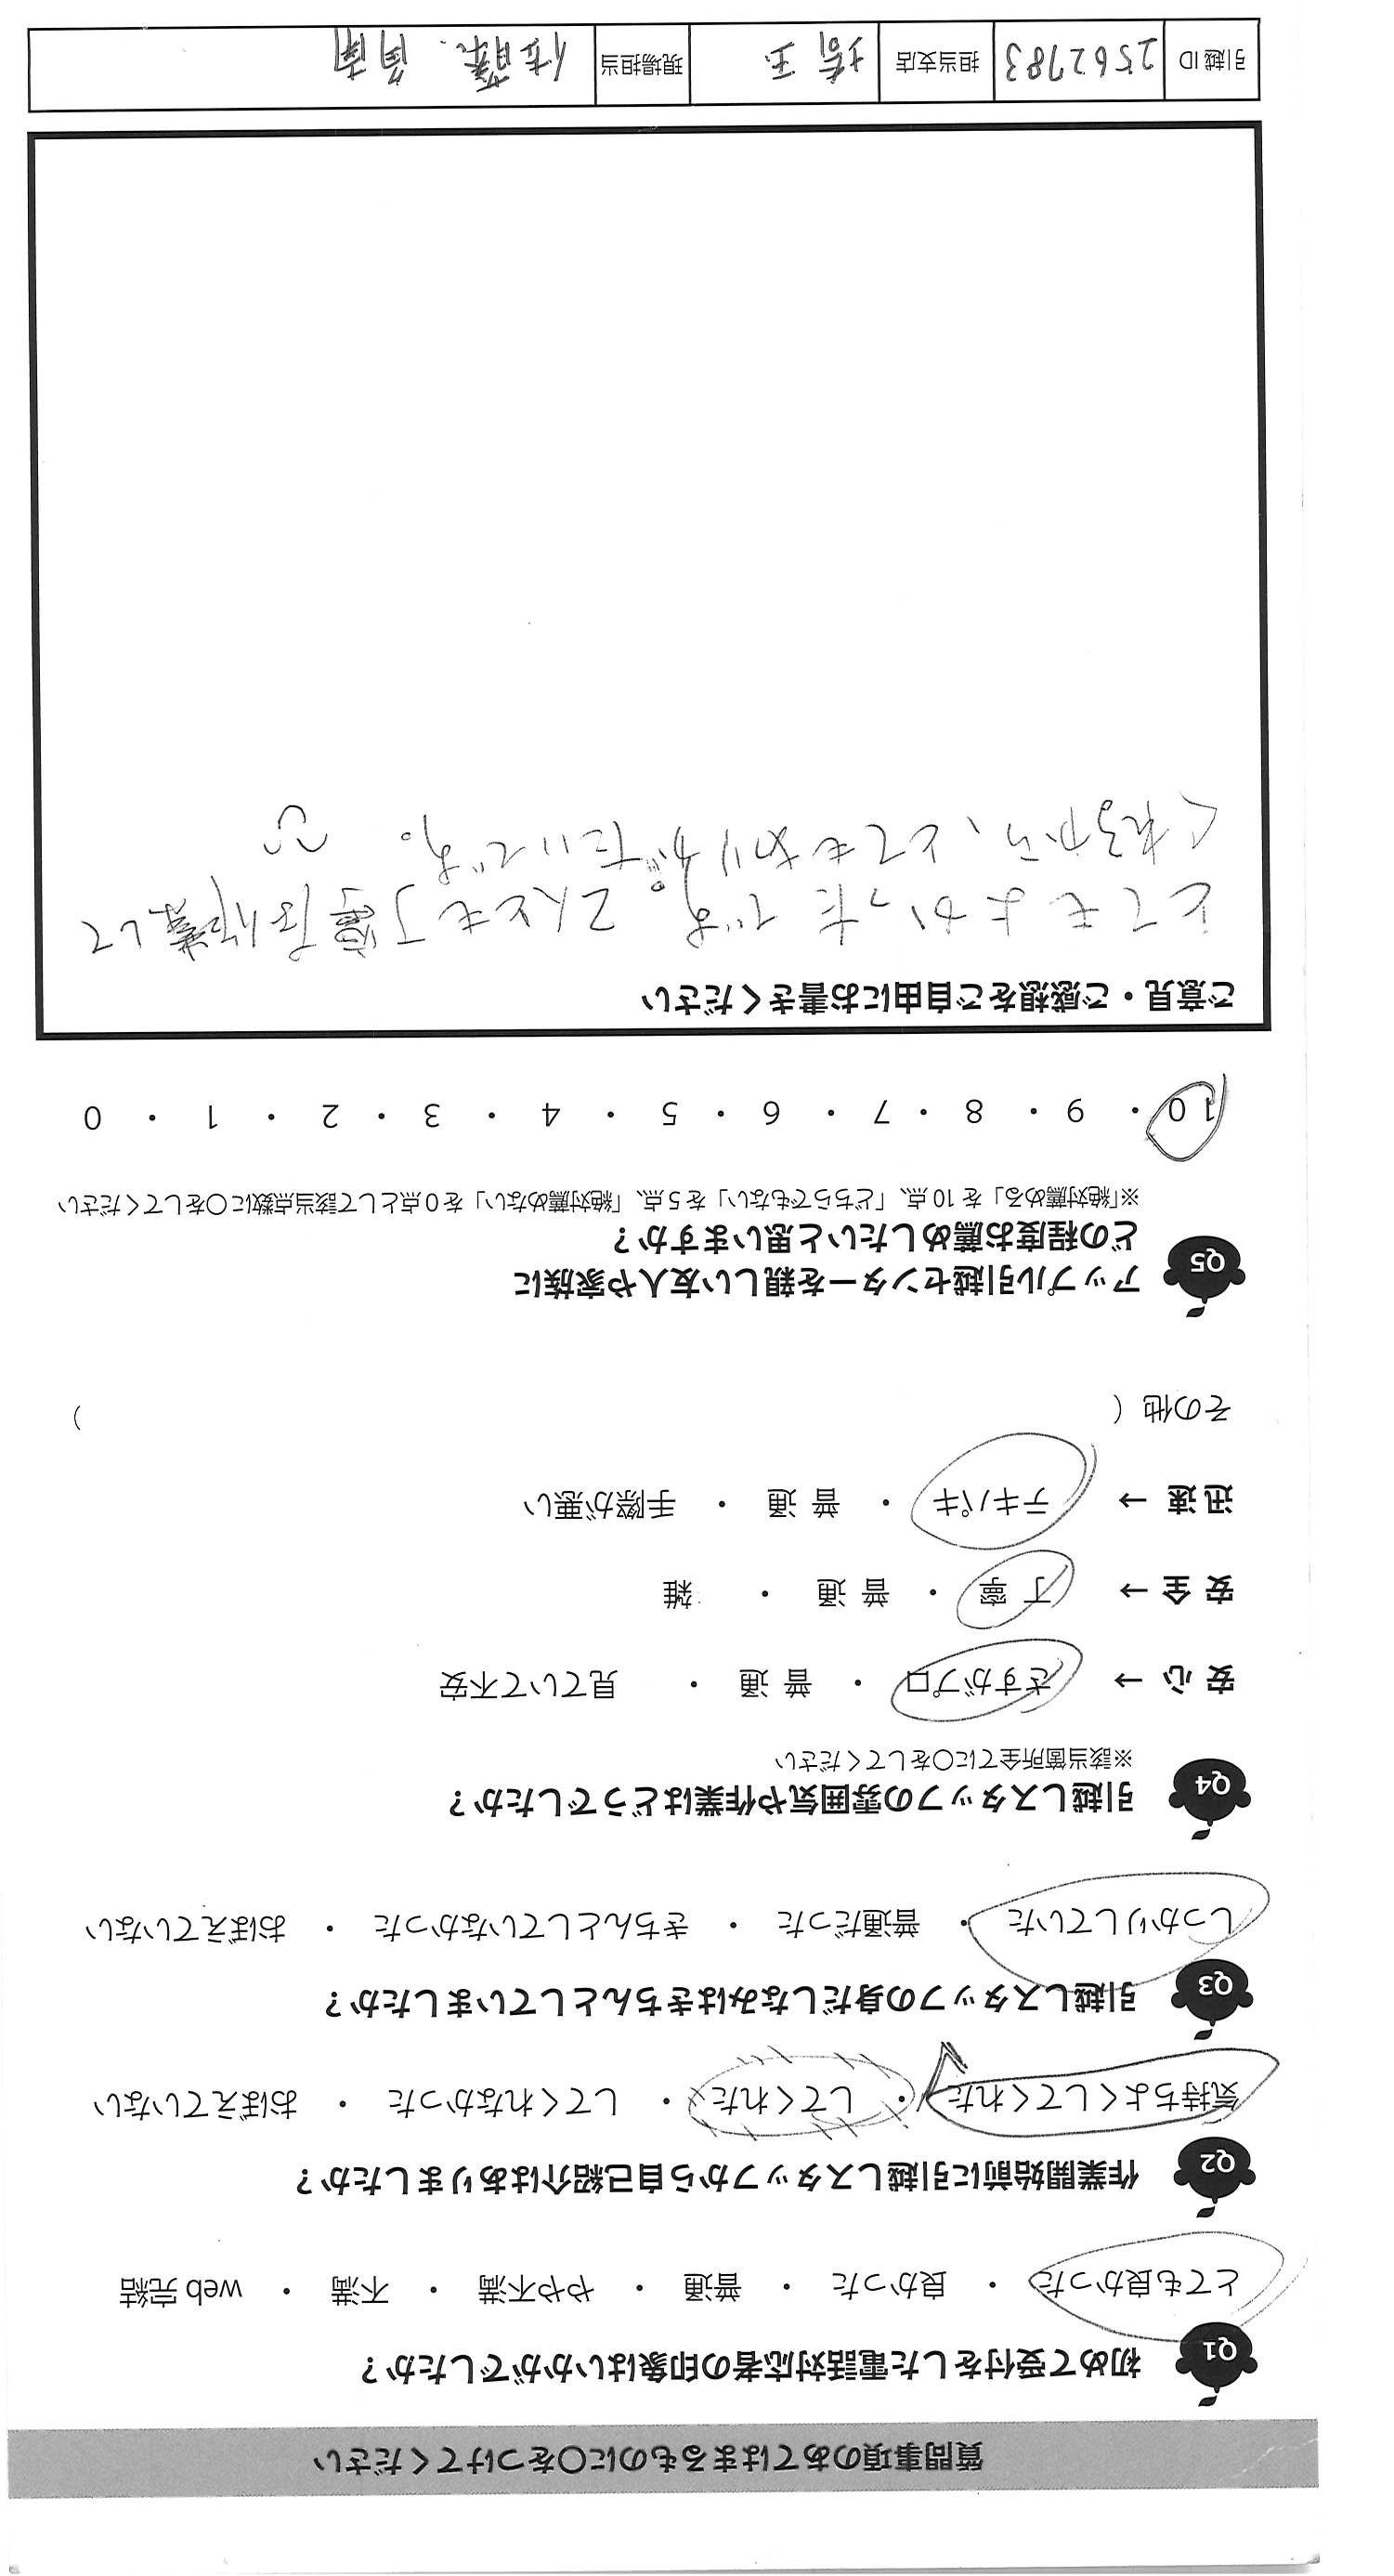 質問事項のあてはまるものに〇をつけてください
Q1 初めて受付をした電話対応者の印象はいかがでしたか？
とても良かった ・ 良かった ・ 普通 ・ やや不満 ・ 不満 ・ web 完結
Q2 作業開始前に引越しスタッフから自己紹介はありましたか？
気持ちよくしてくれた ・ してくれた ・ してくれなかった ・ おぼえていない
Q3 引越しスタッフの身だしなみはきちんとしていましたか？
しっかりしていた ・ 普通だった ・ きちんとしていなかった ・ おぼえていない
Q4 引越しスタッフの雰囲気や作業はどうでしたか？
※該当箇所全てに〇をしてください
安心 → さすがプロ ・ 普通 ・ 見ていて不安
安全 → 丁寧 ・ 普通 ・ 雑
迅速 → テキパキ ・ 普通 ・ 手際が悪い
その他 （ ）
Q5 アップル引越センターを親しい友人や家族に
どの程度お薦めしたいと思いますか？
※「絶対薦める」を 10 点、「どちらでもない」を 5 点、「絶対薦めない」を 0 点として該当点数に〇をしてください
10 ・ 9 ・ 8 ・ 7 ・ 6 ・ 5 ・ 4 ・ 3 ・ 2 ・ 1 ・ 0
ご意見・ご感想をご自由にお書きください
とてもよかったです。2人とも丁寧な作業して
くれるから、とてもありがたいです。
引越 ID 2562783 担当支店 埼玉 現場担当 佐藤.